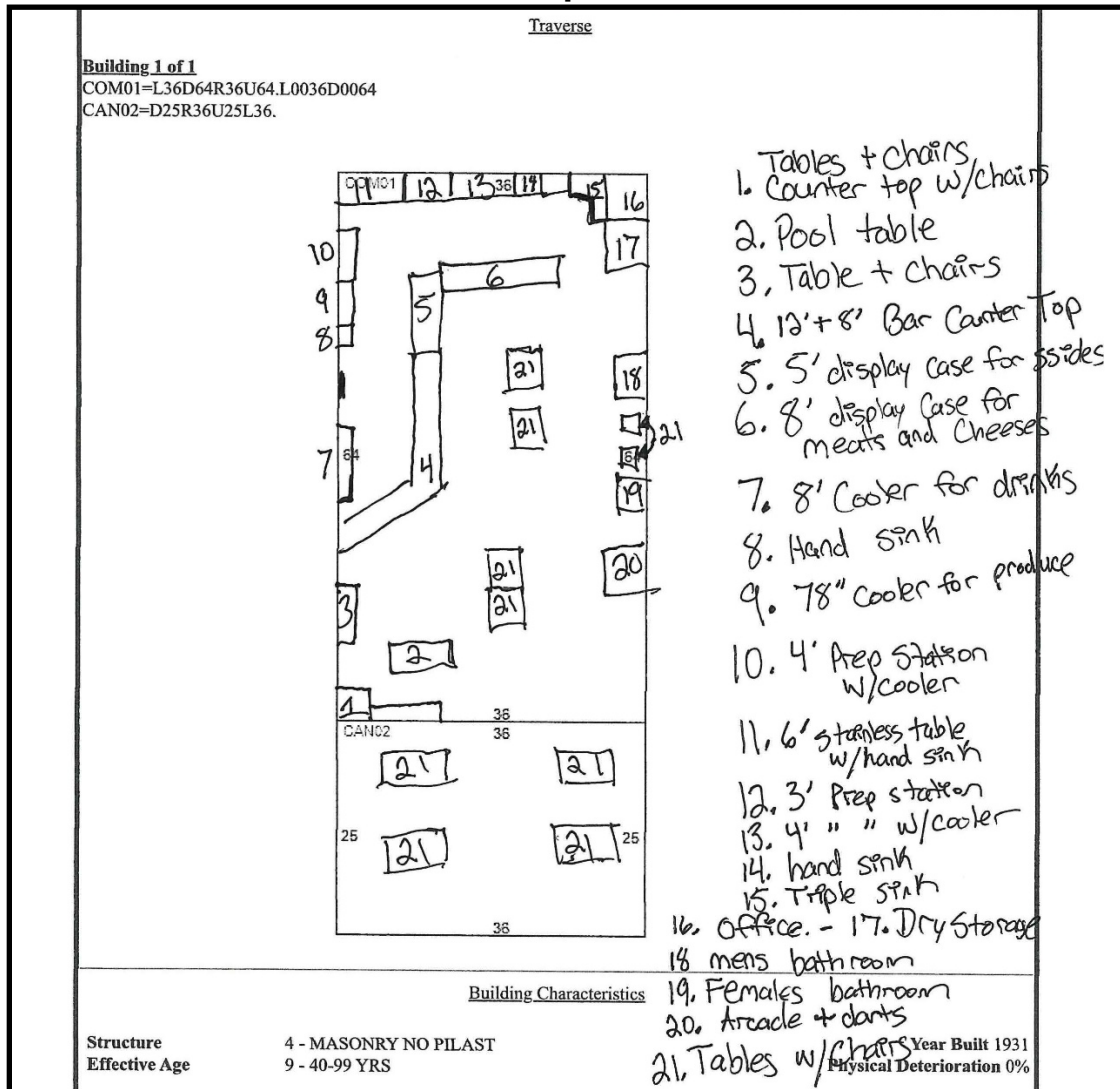 Traverse
Building 1 of 1
COM01=L36D64R36U64.L0036D0064
CAN02=D25R36U25L36.
COM01
11
12
13
36
14
15
16
10
17
6
9
5
8
21
18
21
21
7
64
4
64
19
21
20
21
3
2
1
36
CAN02
36
21
21
25
21
21
25
36
Tables + Chairs
1. Counter top w/chairs
2. Pool table
3, Table + Chairs
4. 12'+8' Bar Counter Top
5. 5' display case for ssides
6. 8' display Case for
meats and Cheeses
7. 8' Cooler for drinks
8. Hand sink
9. 78" Cooler for produce
10. 4' Prep Station
w/cooler
11. 6' stainless table
w/hand sink
12. 3' Prep station
13. 4' " " w/cooler
14. hand sink
15. Triple sink
16. office. - 17. Dry Storage
18 mens bathroom
19. Females bathroom
20. Arcade + darts
21, Tables w/Chairs
Building Characteristics
Structure 4 - MASONRY NO PILAST Year Built 1931
Effective Age 9 - 40-99 YRS Physical Deterioration 0%